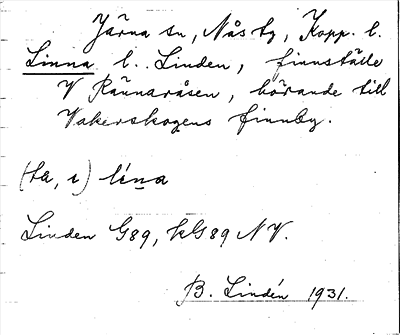 Järna sn, Nås tg, Kopp. l.
Linna l. Linden, finnställe
V Rännaråsen, hörande till
Vakerskogens finnby.
(ta, i) lína
Linden G89, kG89 NV.
B. Lindén 1931.